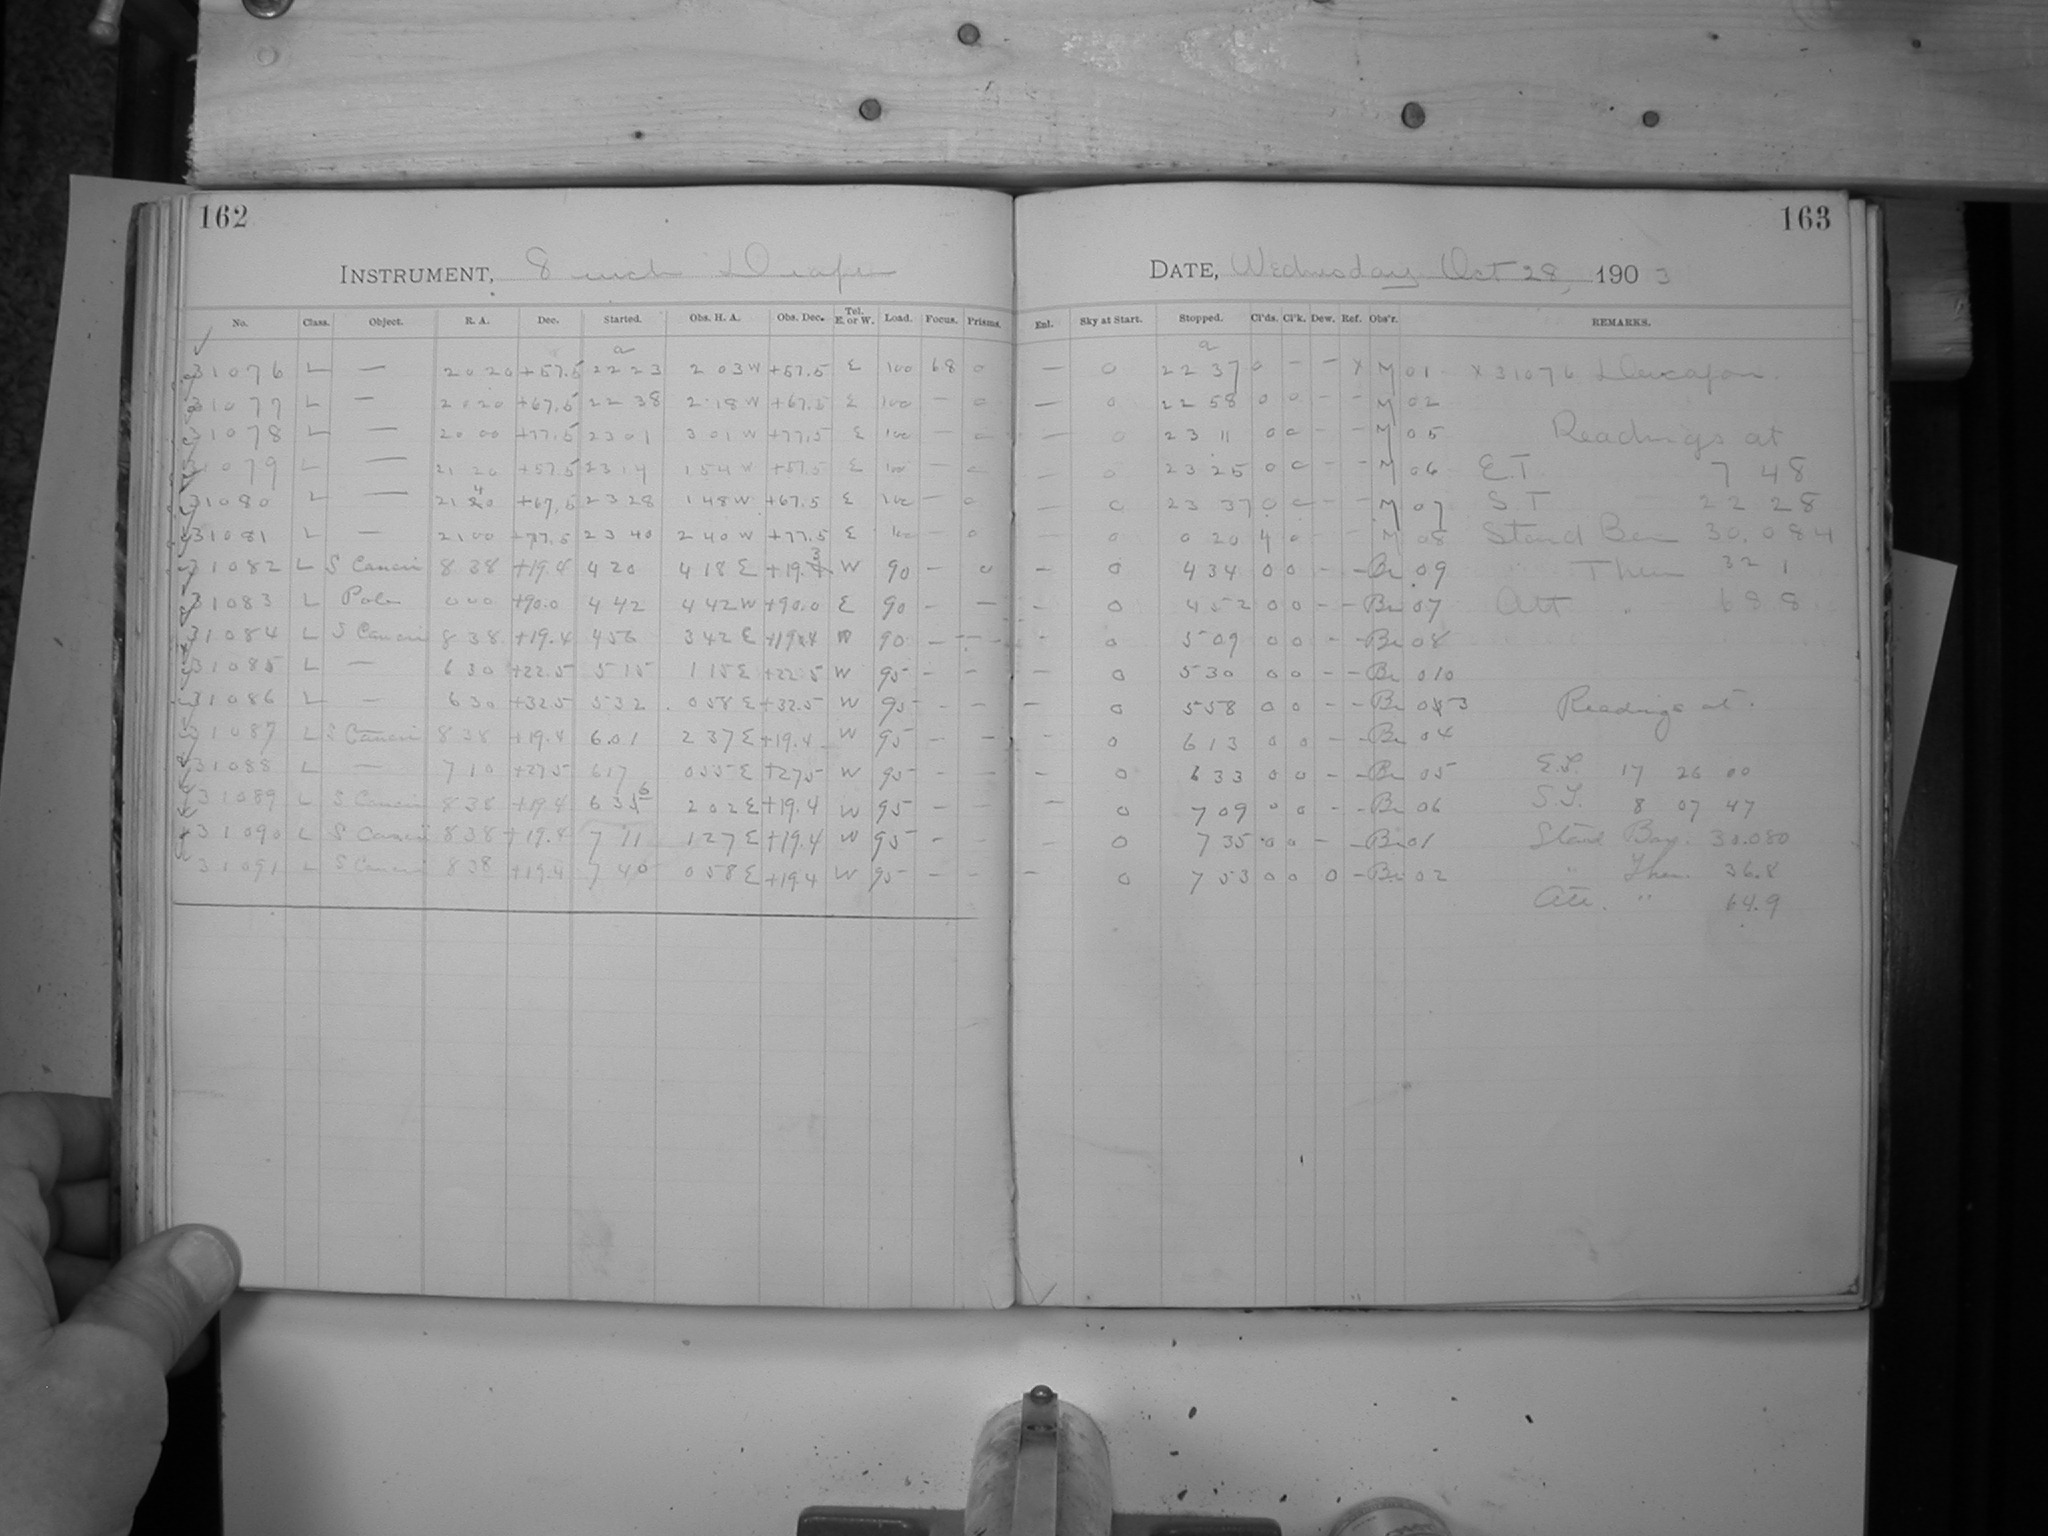 162
INSTRUMENT, 8 inch Draper
No. Class. Object. R. A. Dec. Started. Obs. H. A. Obs. Dec. Tel. E. or W. Load. Focus. Prisms.
a
31076 L — 20 20 +57.5 22 23 2 03 W +57.5 E 100 68 0
31077 L — 20 20 +67.5 22 38 2 18 W +67.5 E 100 — 0
31078 L — 20 00 +77.5 23 01 3 01 W +77.5 E 100 — 0
31079 L — 21 20 +57.5 23 14 1 54 W +57.5 E 100 — 0
31080 L — 21 40 +67.5 23 28 1 48 W +67.5 E 100 — 0
31081 L — 21 00 +77.5 23 40 2 40 W +77.5 E 100 — 0
31082 L S Cancri 8 38 +19.4 4 20 4 18 E +19.3 W 90 — 0
31083 L Pole 0 00 +90.0 4 42 4 42 W +90.0 E 90 — —
31084 L S Cancri 8 38 +19.4 4 56 3 42 E +19.4 W 90 — —
31085 L — 6 30 +22.5 5 15 1 15 E +22.5 W 95 — —
31086 L — 6 30 +32.5 5 32 0 58 E +32.5 W 95 — —
31087 L S Cancri 8 38 +19.4 6 01 2 37 E +19.4 W 95 — —
31088 L — 7 10 +27.5 6 17 0 55 E +27.5 W 95 — —
31089 L S Cancri 8 38 +19.4 6 36 2 02 E +19.4 W 95 — —
31090 L S Cancri 8 38 +19.4 7 11 1 27 E +19.4 W 95 — —
31091 L S Cancri 8 38 +19.4 7 40 0 58 E +19.4 W 95 — —
163
DATE, Wednesday Oct 28, 1903
Enl. Sky at Start. Stopped. Cl'ds. Cl'k. Dew. Ref. Obs'r. REMARKS.
a
— 0 22 37 0 — — x M 01 x 31076
— 0 22 58 0 0 — — M 02
— 0 23 11 0 0 — — M 05 Readings at
— 0 23 25 0 0 — — M 06 E.T 7 48
— 0 23 37 0 0 — — M 07 S T 22 28
— 0 0 20 4 0 — — M 08 Stand Bar 30.084
— 0 4 34 0 0 — — Br 09 " Ther 32 1
— 0 4 52 0 0 — — Br 07 Att " 68 8
— 0 5 09 0 0 — — Br 08
— 0 5 30 0 0 — — Br 010
— 0 5 58 0 0 — — Br 03 Readings at.
— 0 6 13 0 0 — — Br 04
— 0 6 33 0 0 — — Br 05 E.T. 17 26 00
— 0 7 09 0 0 — — Br 06 S.T. 8 07 47
— 0 7 35 0 0 — — Br 01 Stand Bar. 30.080
— 0 7 53 0 0 0 — Br 02 " Ther. 36.8
Att. " 64.9